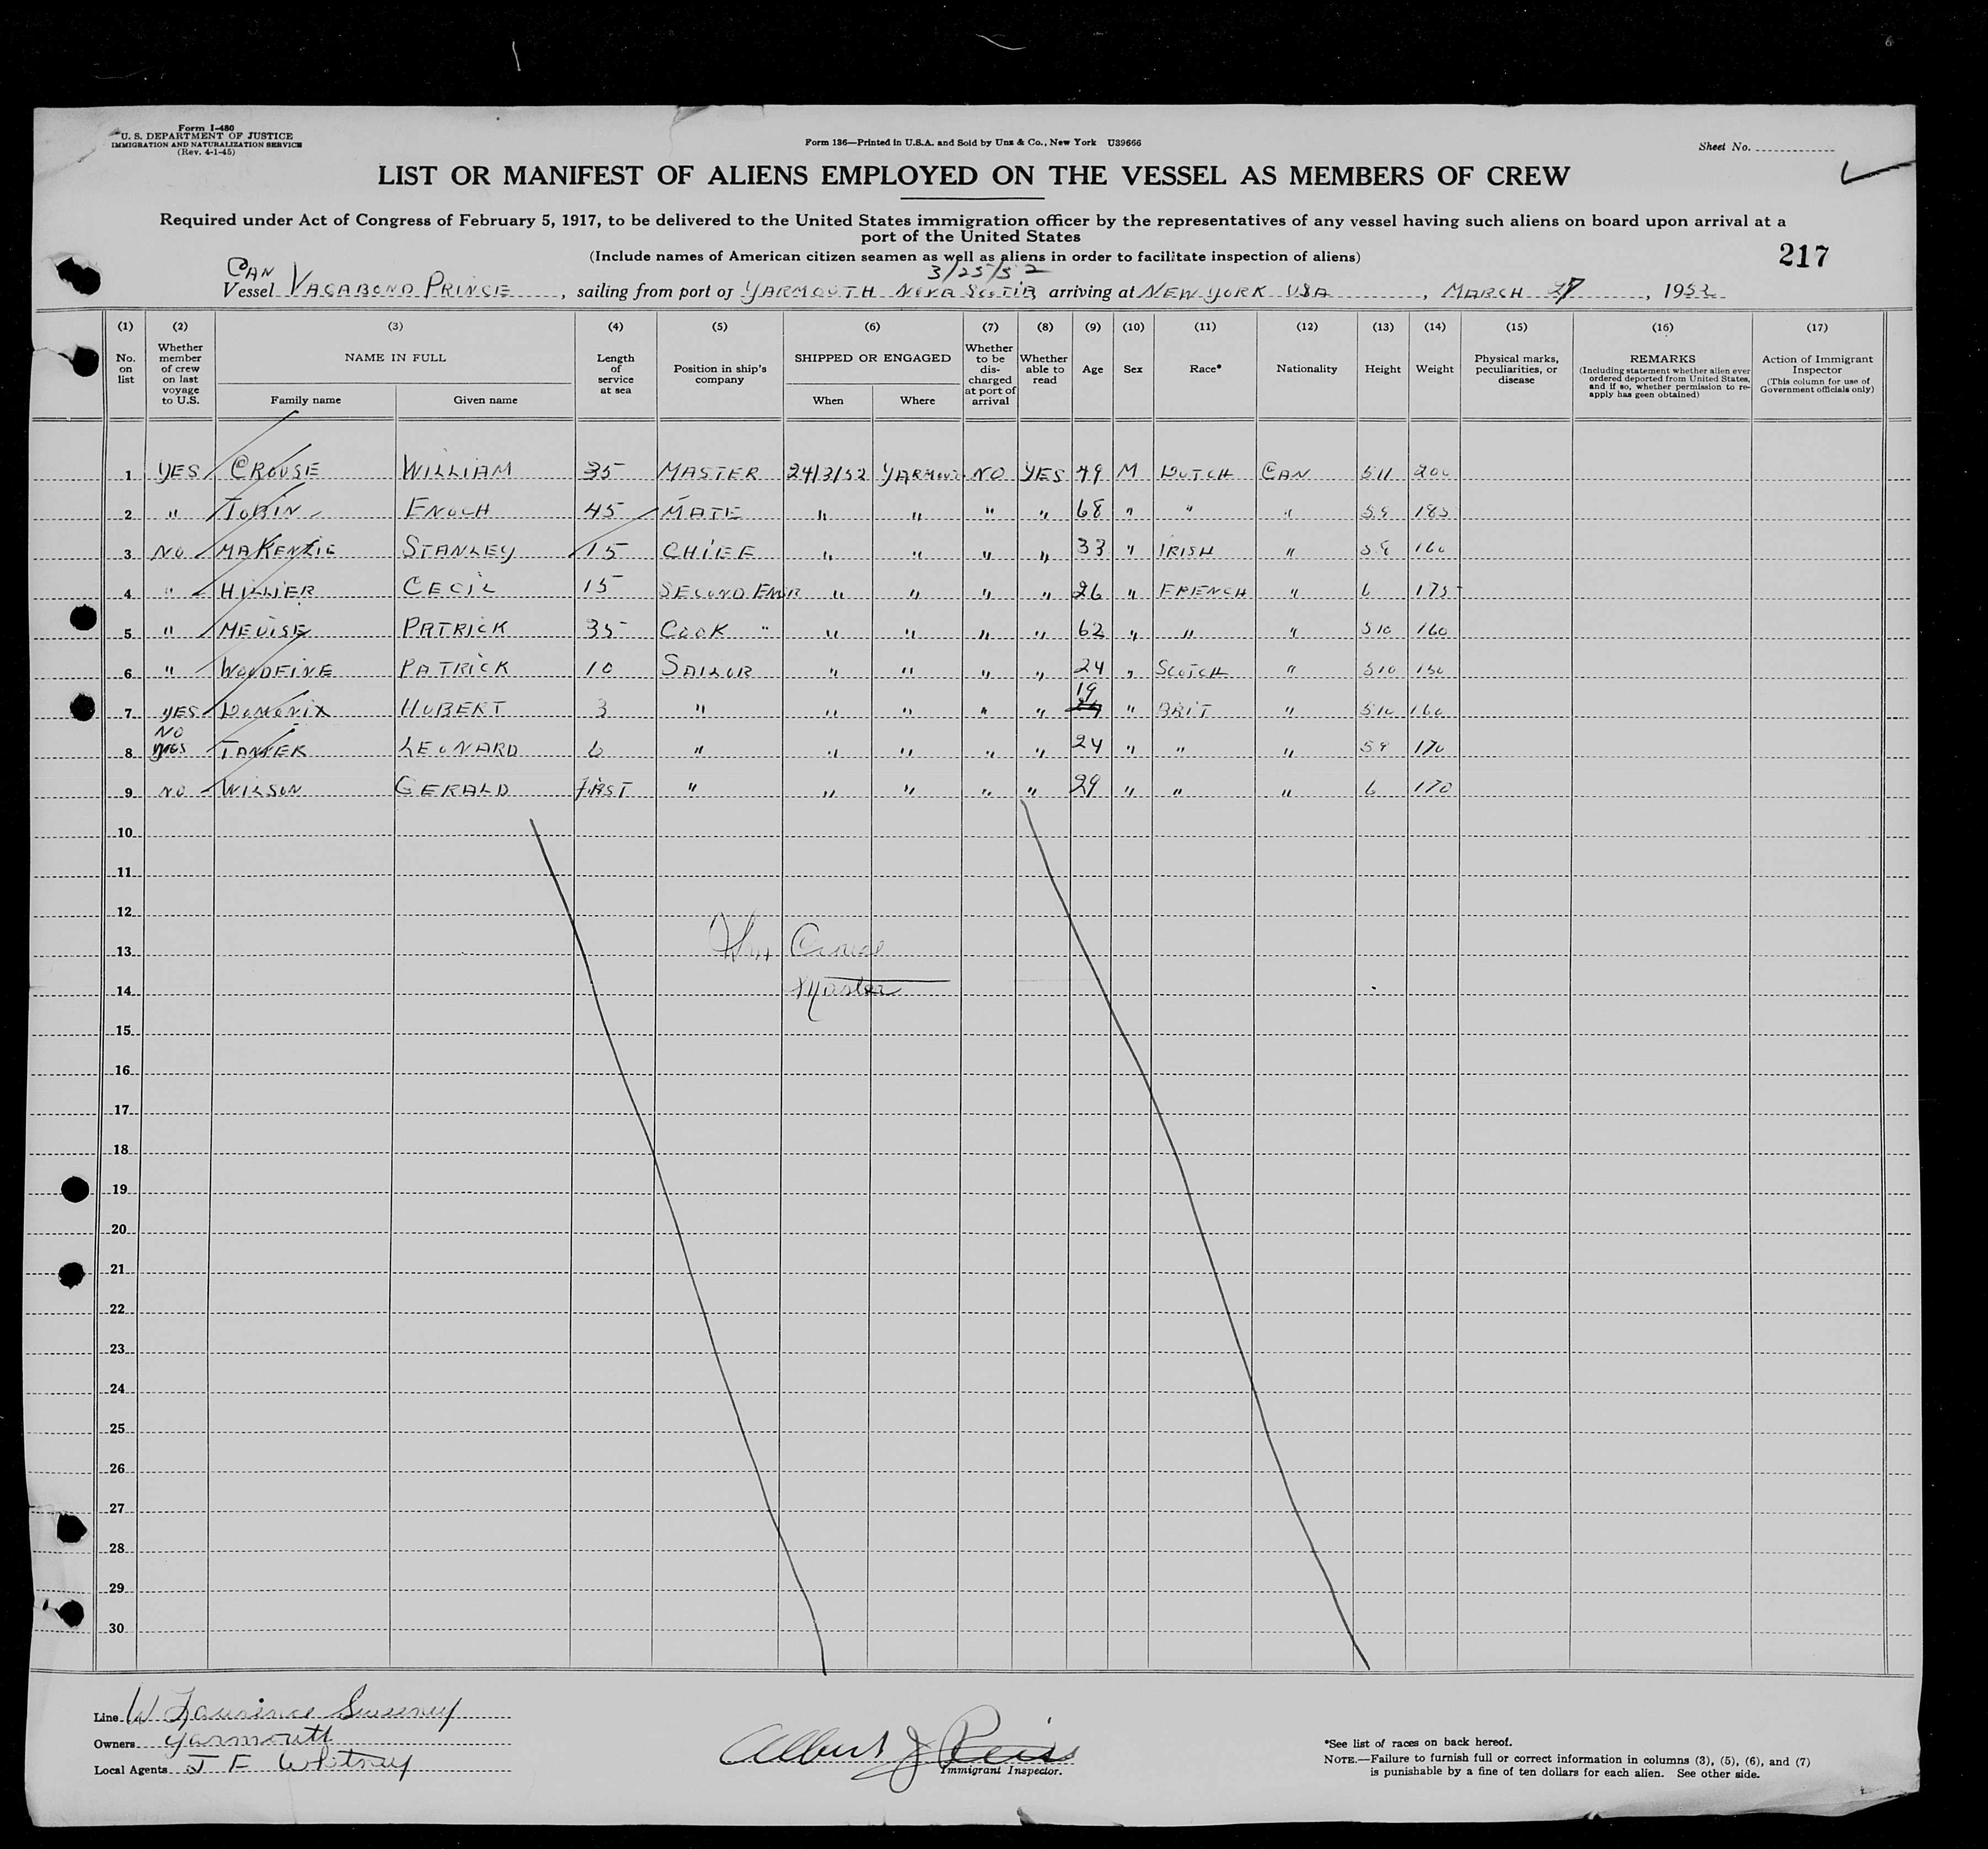 6
Form I-480
U. S. DEPARTMENT OF JUSTICE
IMMIGRATION AND NATURALIZATION SERVICE
(Rev. 4-1-45)
Form 136—Printed in U.S.A. and Sold by Unz & Co., New York U39666
Sheet No.
LIST OR MANIFEST OF ALIENS EMPLOYED ON THE VESSEL AS MEMBERS OF CREW
Required under Act of Congress of February 5, 1917, to be delivered to the United States immigration officer by the representatives of any vessel having such aliens on board upon arrival at a
port of the United States
(Include names of American citizen seamen as well as aliens in order to facilitate inspection of aliens)
217
CAN 3/25/52
Vessel VAGABOND PRINCE, sailing from port of YARMOUTH NOVA SCOTIA arriving at NEW YORK USA, MARCH 27, 1952
(1) (2) (3) (4) (5) (6) (7) (8) (9) (10) (11) (12) (13) (14) (15) (16) (17)
No. on list
Whether member of crew on last voyage to U.S.
NAME IN FULL
Family name
Given name
Length of service at sea
Position in ship's company
SHIPPED OR ENGAGED
When
Where
Whether to be dis-charged at port of arrival
Whether able to read
Age
Sex
Race*
Nationality
Height
Weight
Physical marks, peculiarities, or disease
REMARKS
(Including statement whether alien ever ordered deported from United States, and if so, whether permission to re-apply has geen obtained)
Action of Immigrant Inspector
(This column for use of Government officials only)
1 YES CROUSE WILLIAM 35 MASTER 24/3/52 YARMOUT NO YES 49 M DUTCH CAN 5 11 200
2 " TOBIN ENOCH 45 MATE " " " " 68 " " " 5.9 185
3 NO MAKENZIE STANLEY 15 CHIEF " " " " 33 " IRISH " 5.9 160
4 " HILLIER CECIL 15 SECOND ENGR " " " " 26 " FRENCH " 6 175
5 " MEUISE PATRICK 35 COOK " " " " " 62 " " " 5 10 160
6 " WOODFINE PATRICK 10 SAILOR " " " " 24 " SCOTCH " 5 10 150
19
7 YES DOMONIX HUBERT 3 " " " " " 24 " BRIT " 5 10 160
NO
8 YES TANNER LEONARD 6 " " " " " 24 " " " 5 9 170
9 NO WILSON GERALD FIRST " " " " " 29 " " " 6 170
10
11
12
13 Wm Crouse
14 Master
15
16
17
18
19
20
21
22
23
24
25
26
27
28
29
30
Line W Laurence Sweeney
Owners Yarmouth
Local Agents J F Whitney
Albert J Reiss
Immigrant Inspector.
*See list of races on back hereof.
NOTE.—Failure to furnish full or correct information in columns (3), (5), (6), and (7)
is punishable by a fine of ten dollars for each alien. See other side.